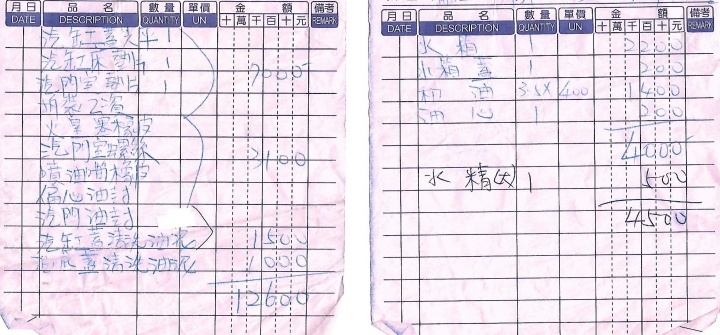 月日 品名 數量 單價 金額 備考
DATE DESCRIPTION QUANTITY UN 十萬千百十元 REMARK
汽缸蓋 平 1
汽缸床墊片 1 7000
汽門室墊片 1
火星塞橡皮
汽門室螺絲 3100
噴油嘴橡皮
偏心油封
汽門油封
汽缸蓋清洗油泥 1500
蓋清洗油泥 1000
12600
月日 品名 數量 單價 金額 備考
DATE DESCRIPTION QUANTITY UN 十萬千百十元 REMARK
水箱 1 2200
水箱蓋 1 200
机油 3.5X 400 1400
油心 1 200
4000
水精(大) 1 500
4500